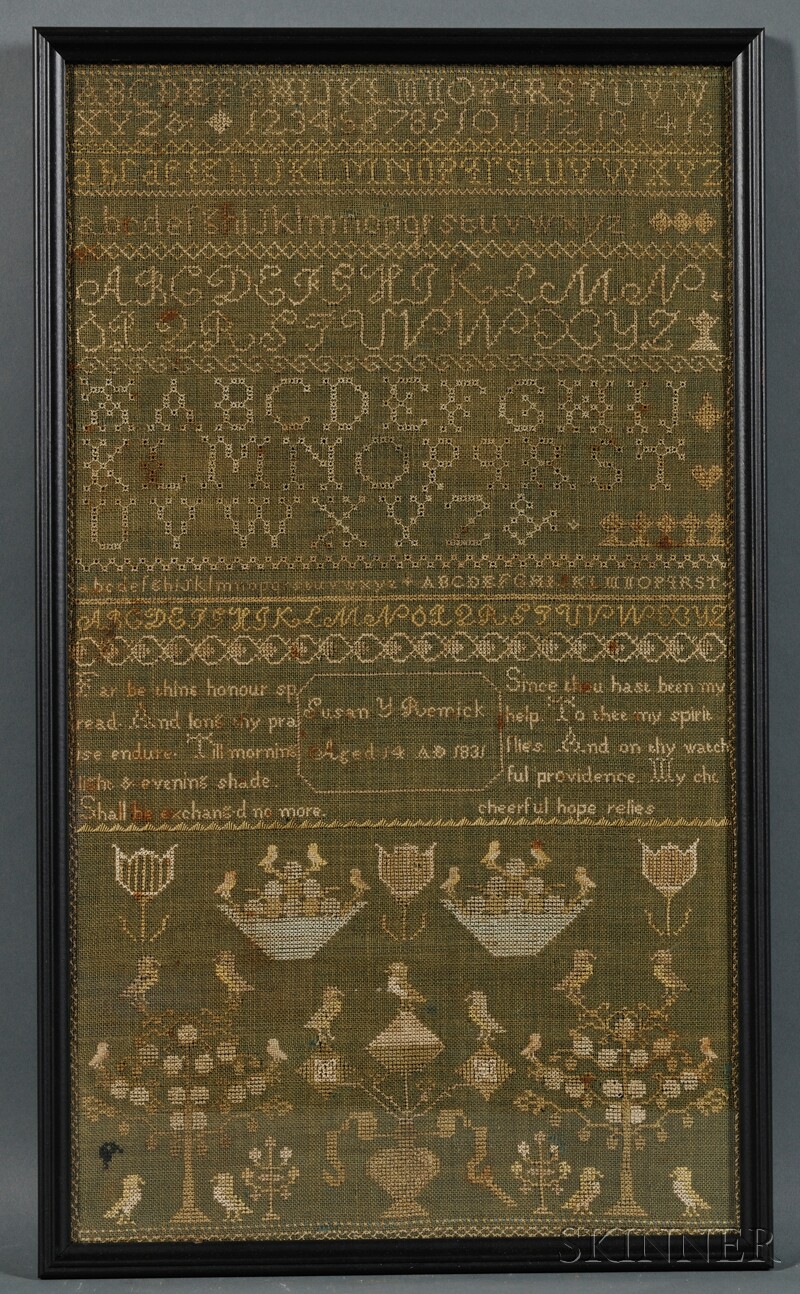 ABCDEFGHIJKLMNOPQRSTUVW
XYZ& 1 2 3 4 5 6 7 8 9 10 11 12 13 14 15
abcdefghIJKLMNOPqrsLUVWXYZ
abcdefghiJklmnopqrstuvwxyz
ABCDEFGHIJKLMN
OPQRSTUVWXYZ
ABCDEFGHIJ
KLMNOPQRST
UVWXYZ&
abcdefghiJklmnopqrstuvwxyz + ABCDEFGHIJKLMNOPQRST
ABCDEFGHIJKLMNOPQRSTUVWXYZ
Far be thine honour sp
read. And long thy pra
ise endure. Till morning
light & evening shade.
Shall be exchang.d no more.
Susan Y Remick
Aged 14 AD 1831
Since thou hast been my
help. To thee my spirit
flies. And on thy watch
ful providence. My che
cheerful hope relies
SKINNER